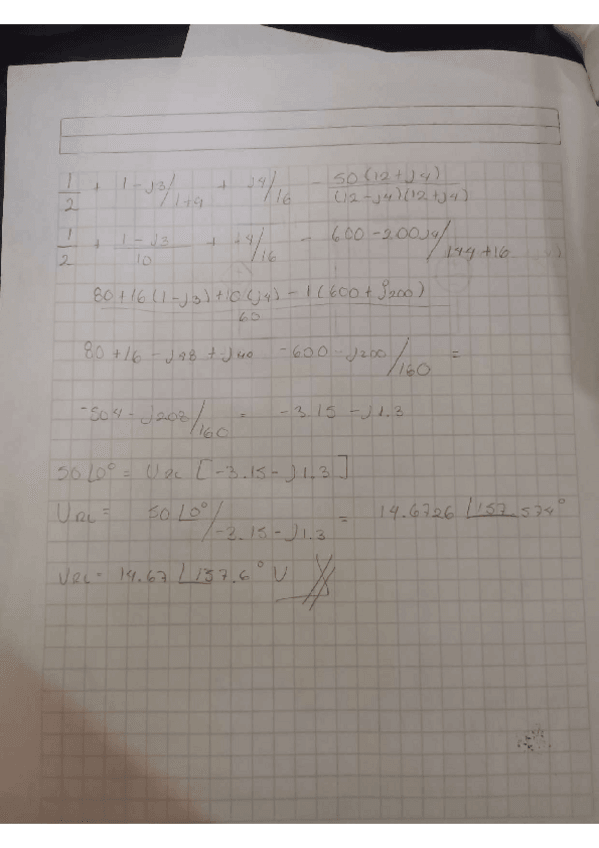 1/2 + 1-J3/1+9 + J4/16 - 50(12+J4)/(12-J4)(12+J4)
1/2 + 1-J3/10 + +4/16 - 600-200J4/144+16
80+16(1-J3)+10(J4)-1(600+J200)/60
80+16-J48+J40 -600-J200/160 =
-504-J208/160 = -3.15-J1.3
50∠0° = [-3.15-J1.3]
50∠0°/-3.15-J1.3 = 14.6726 ∠157.574°
14.67 ∠157.6° V